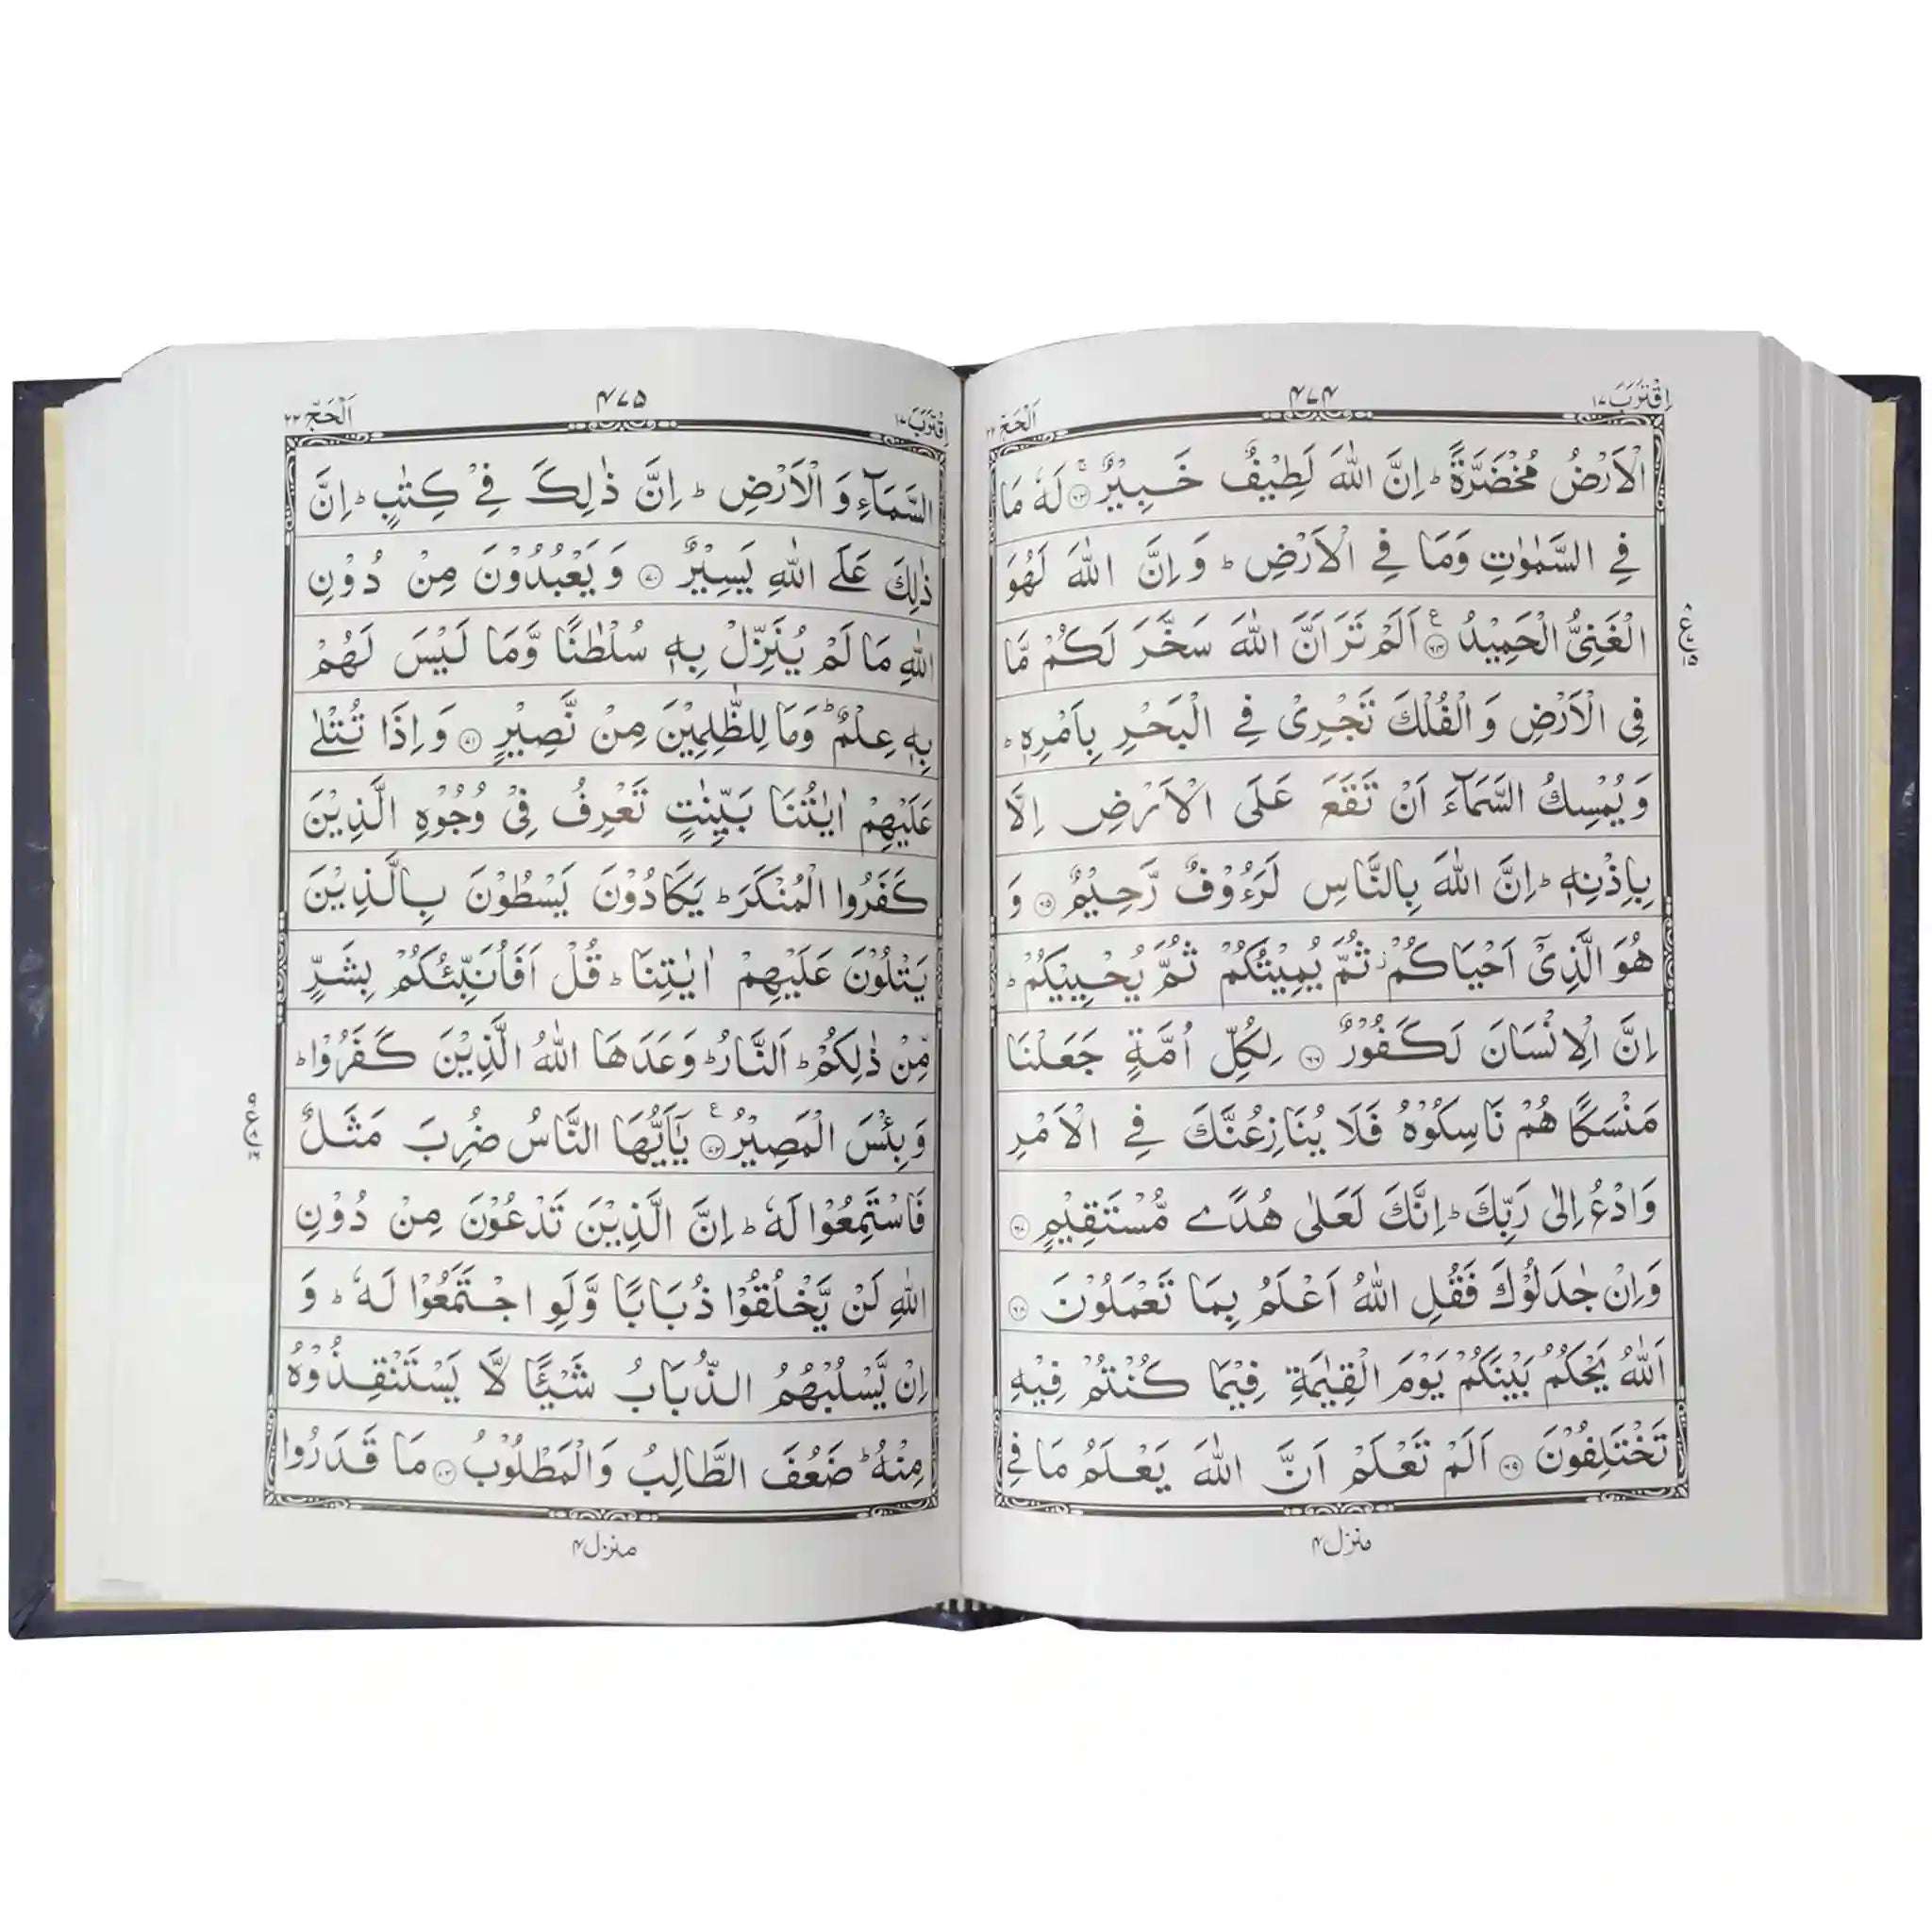 اِقْتَرَبَ ١٧
٤٧٤
اَلْحَجّ ٢٢
الْاَرْضُ مُخْضَرَّةً ؕ اِنَّ اللّٰهَ لَطِيْفٌ خَبِيْرٌ ۚ ﴿٦٣﴾ لَهٗ مَا
فِي السَّمٰوٰتِ وَمَا فِي الْاَرْضِ ؕ وَ اِنَّ اللّٰهَ لَهُوَ
الْغَنِيُّ الْحَمِيْدُ ﴿٦٤﴾ ع اَلَمْ تَرَ اَنَّ اللّٰهَ سَخَّرَ لَكُمْ مَّا
فِي الْاَرْضِ وَ الْفُلْكَ تَجْرِيْ فِي الْبَحْرِ بِاَمْرِهٖ ؕ
وَ يُمْسِكُ السَّمَآءَ اَنْ تَقَعَ عَلَى الْاَرْضِ اِلَّا
بِاِذْنِهٖ ؕ اِنَّ اللّٰهَ بِالنَّاسِ لَرَءُوْفٌ رَّحِيْمٌ ﴿٦٥﴾ وَ
هُوَ الَّذِيْۤ اَحْيَاكُمْ ز ثُمَّ يُمِيْتُكُمْ ثُمَّ يُحْيِيْكُمْ ؕ
اِنَّ الْاِنْسَانَ لَكَفُوْرٌ ﴿٦٦﴾ لِكُلِّ اُمَّةٍ جَعَلْنَا
مَنْسَكًا هُمْ نَاسِكُوْهُ فَلَا يُنَازِعُنَّكَ فِي الْاَمْرِ
وَادْعُ اِلٰى رَبِّكَ ؕ اِنَّكَ لَعَلٰى هُدًى مُّسْتَقِيْمٍ ﴿٦٧﴾
وَاِنْ جٰدَلُوْكَ فَقُلِ اللّٰهُ اَعْلَمُ بِمَا تَعْمَلُوْنَ ﴿٦٨﴾
اَللّٰهُ يَحْكُمُ بَيْنَكُمْ يَوْمَ الْقِيٰمَةِ فِيْمَا كُنْتُمْ فِيْهِ
تَخْتَلِفُوْنَ ﴿٦٩﴾ اَلَمْ تَعْلَمْ اَنَّ اللّٰهَ يَعْلَمُ مَا فِي
منزل ٤
اِقْتَرَبَ ١٧
٤٧٥
اَلْحَجّ ٢٢
السَّمَآءِ وَ الْاَرْضِ ؕ اِنَّ ذٰلِكَ فِيْ كِتٰبٍ ؕ اِنَّ
ذٰلِكَ عَلَى اللّٰهِ يَسِيْرٌ ﴿٧٠﴾ وَ يَعْبُدُوْنَ مِنْ دُوْنِ
اللّٰهِ مَا لَمْ يُنَزِّلْ بِهٖ سُلْطٰنًا وَّمَا لَيْسَ لَهُمْ
بِهٖ عِلْمٌ ؕ وَمَا لِلظّٰلِمِيْنَ مِنْ نَّصِيْرٍ ﴿٧١﴾ وَ اِذَا تُتْلٰى
عَلَيْهِمْ اٰيٰتُنَا بَيِّنٰتٍ تَعْرِفُ فِيْ وُجُوْهِ الَّذِيْنَ
كَفَرُوا الْمُنْكَرَ ؕ يَكَادُوْنَ يَسْطُوْنَ بِالَّذِيْنَ
يَتْلُوْنَ عَلَيْهِمْ اٰيٰتِنَا ؕ قُلْ اَفَاُنَبِّئُكُمْ بِشَرٍّ
مِّنْ ذٰلِكُمْ ؕ اَلنَّارُ ؕ وَعَدَهَا اللّٰهُ الَّذِيْنَ كَفَرُوْا ؕ
وَ بِئْسَ الْمَصِيْرُ ﴿٧٢﴾ ع يٰۤاَيُّهَا النَّاسُ ضُرِبَ مَثَلٌ
فَاسْتَمِعُوْا لَهٗ ؕ اِنَّ الَّذِيْنَ تَدْعُوْنَ مِنْ دُوْنِ
اللّٰهِ لَنْ يَّخْلُقُوْا ذُبَابًا وَّلَوِ اجْتَمَعُوْا لَهٗ ؕ وَ
اِنْ يَّسْلُبْهُمُ الذُّبَابُ شَيْـًٔا لَّا يَسْتَنْقِذُوْهُ
مِنْهُ ؕ ضَعُفَ الطَّالِبُ وَالْمَطْلُوْبُ ﴿٧٣﴾ مَا قَدَرُوا
منزل ٤